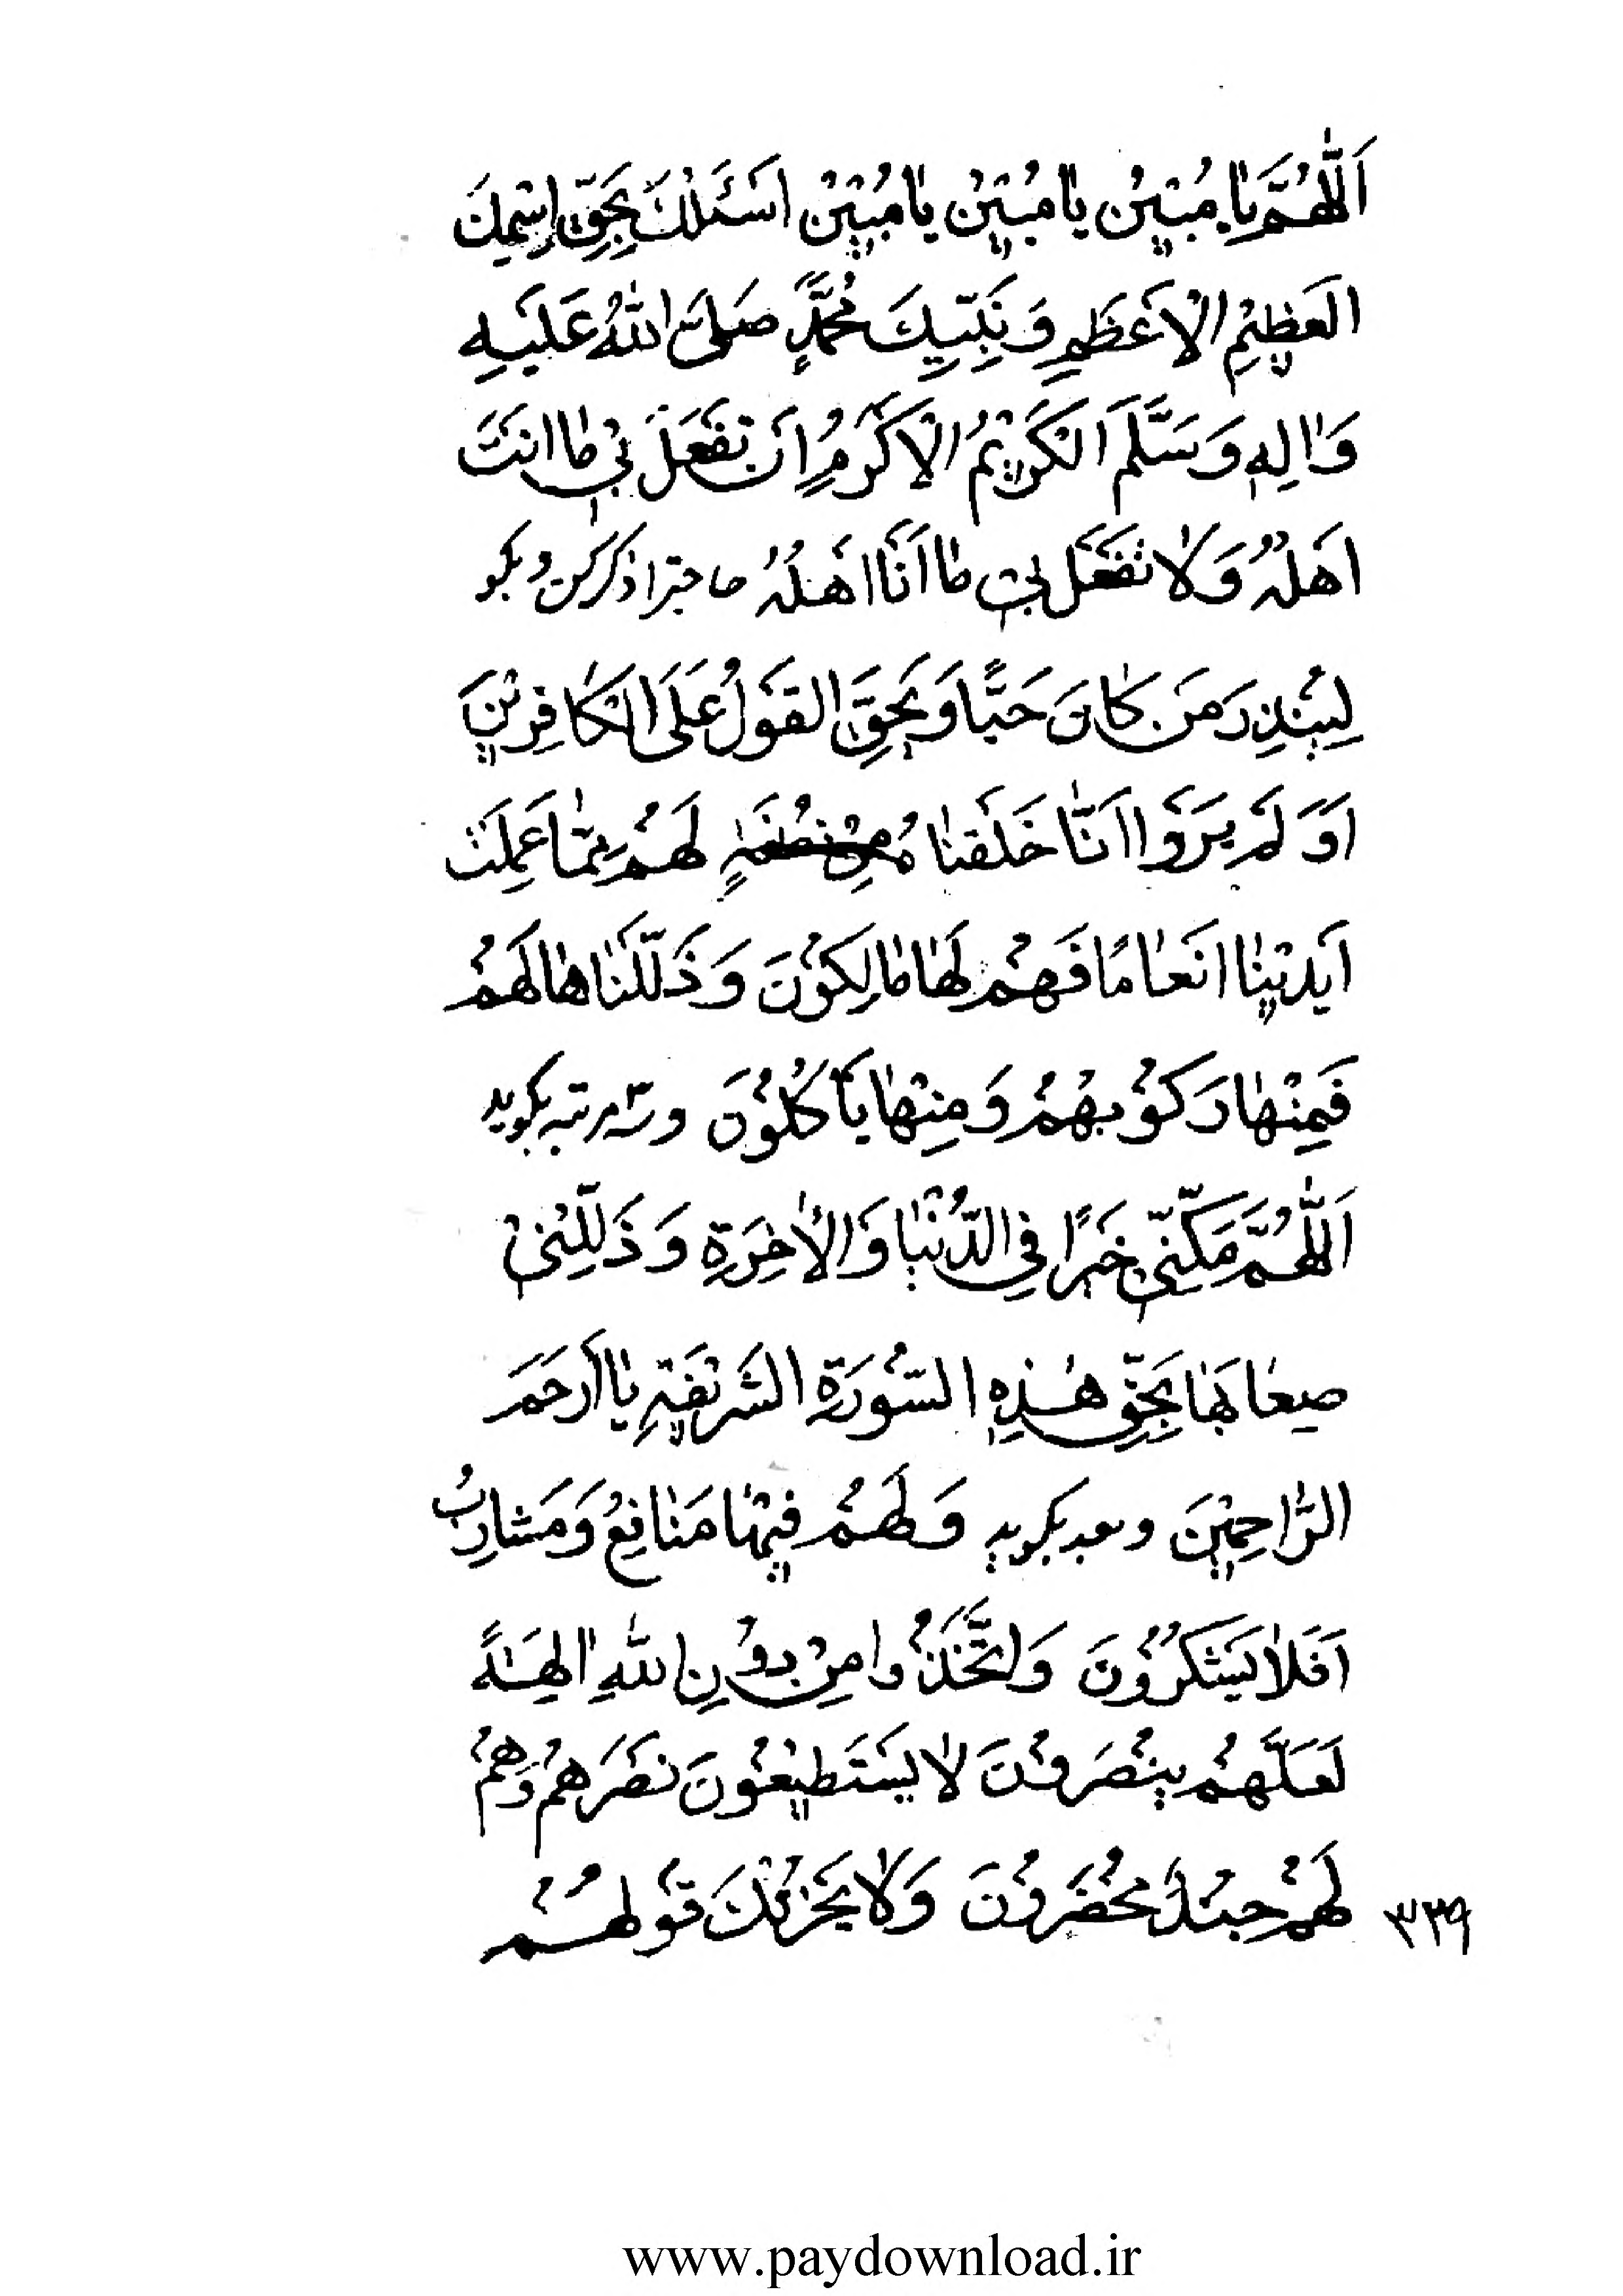 اَللّٰهُمَّ یٰا مُبینُ یٰا مُبینُ یٰا مُبینُ اَسْئَلُكَ بِحَقِّ اِسْمِكَ
العَظیمِ الْاَعْظَمِ وَ نَبِیِّكَ مُحَمَّدٍ صَلَّی اللّٰهُ عَلَیهِ
وَ اٰلِهِ وَ سَلَّمَ الکَریمُ الْاَکْرَمُ اَن تَفْعَلَ بی مٰا اَنْتَ
اَهْلُهُ وَ لاٰ تَفْعَل بی مٰا اَنَا اَهْلُهُ حاجترا ذکر کن و بگو
لِیُنْذِرَ مَن کٰانَ حَیًّا وَ یَحِقَّ القَوْلُ عَلَی الْکٰافِرینَ
اَوَ لَمْ یَرَوْا اَنّٰا خَلَقْنٰا لَهُمْ مِمّٰا عَمِلَتْ
اَیْدینٰا اَنْعٰامًا فَهُمْ لَهٰا مٰالِکُوْنَ وَ ذَلَّلْنٰاهٰا لَهُمْ
فَمِنْهٰا رَکُوْبُهُمْ وَ مِنْهٰا یَأکُلُوْنَ و سه مرتبه بگوید
اَللّٰهُمَّ مَکِّنّی خَیْرًا فِی الدُّنْیٰا وَ الْاٰخِرَةِ وَ ذَلِّلْنی
صِعٰابَهٰا بِحَقِّ هٰذِهِ السُّورَةِ الشَّریفَةِ یٰا اَرْحَمَ
الرّٰاحِمینَ و بعد بگوید وَ لَهُمْ فیهٰا مَنٰافِعُ وَ مَشٰارِبُ
اَفَلاٰ یَشْکُرُوْنَ وَ اتَّخَذُوا مِنْ دُوْنِ اللّٰهِ اٰلِهَةً
لَعَلَّهُمْ یُنْصَرُوْنَ لاٰ یَسْتَطیعُوْنَ نَصْرَهُمْ وَ هُمْ
لَهُمْ جُنْدٌ مُحْضَرُوْنَ وَ لاٰ یَحْزُنْكَ قَوْلُهُمْ
۳۳۹
www.paydownload.ir